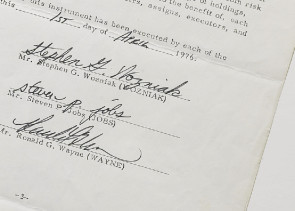 both risk
of holdings,
to the benefit of, each
assigns, executors, and
this instrument has been executed by each of the
this 1ST day of April 1976.
Stephen G. Wozniak
Mr. Stephen G. Wozniak (WOZNIAK)
steven P. jobs
Mr. Steven P. Jobs (JOBS)
Mr. Ronald G. Wayne (WAYNE)
-3-